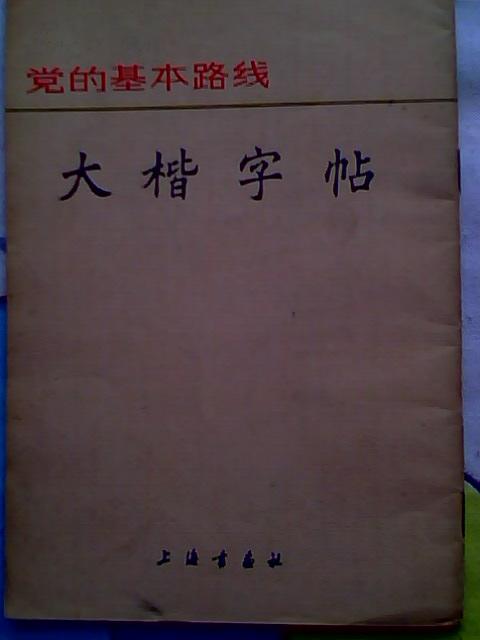 党的基本路线
大楷字帖
上海书画社